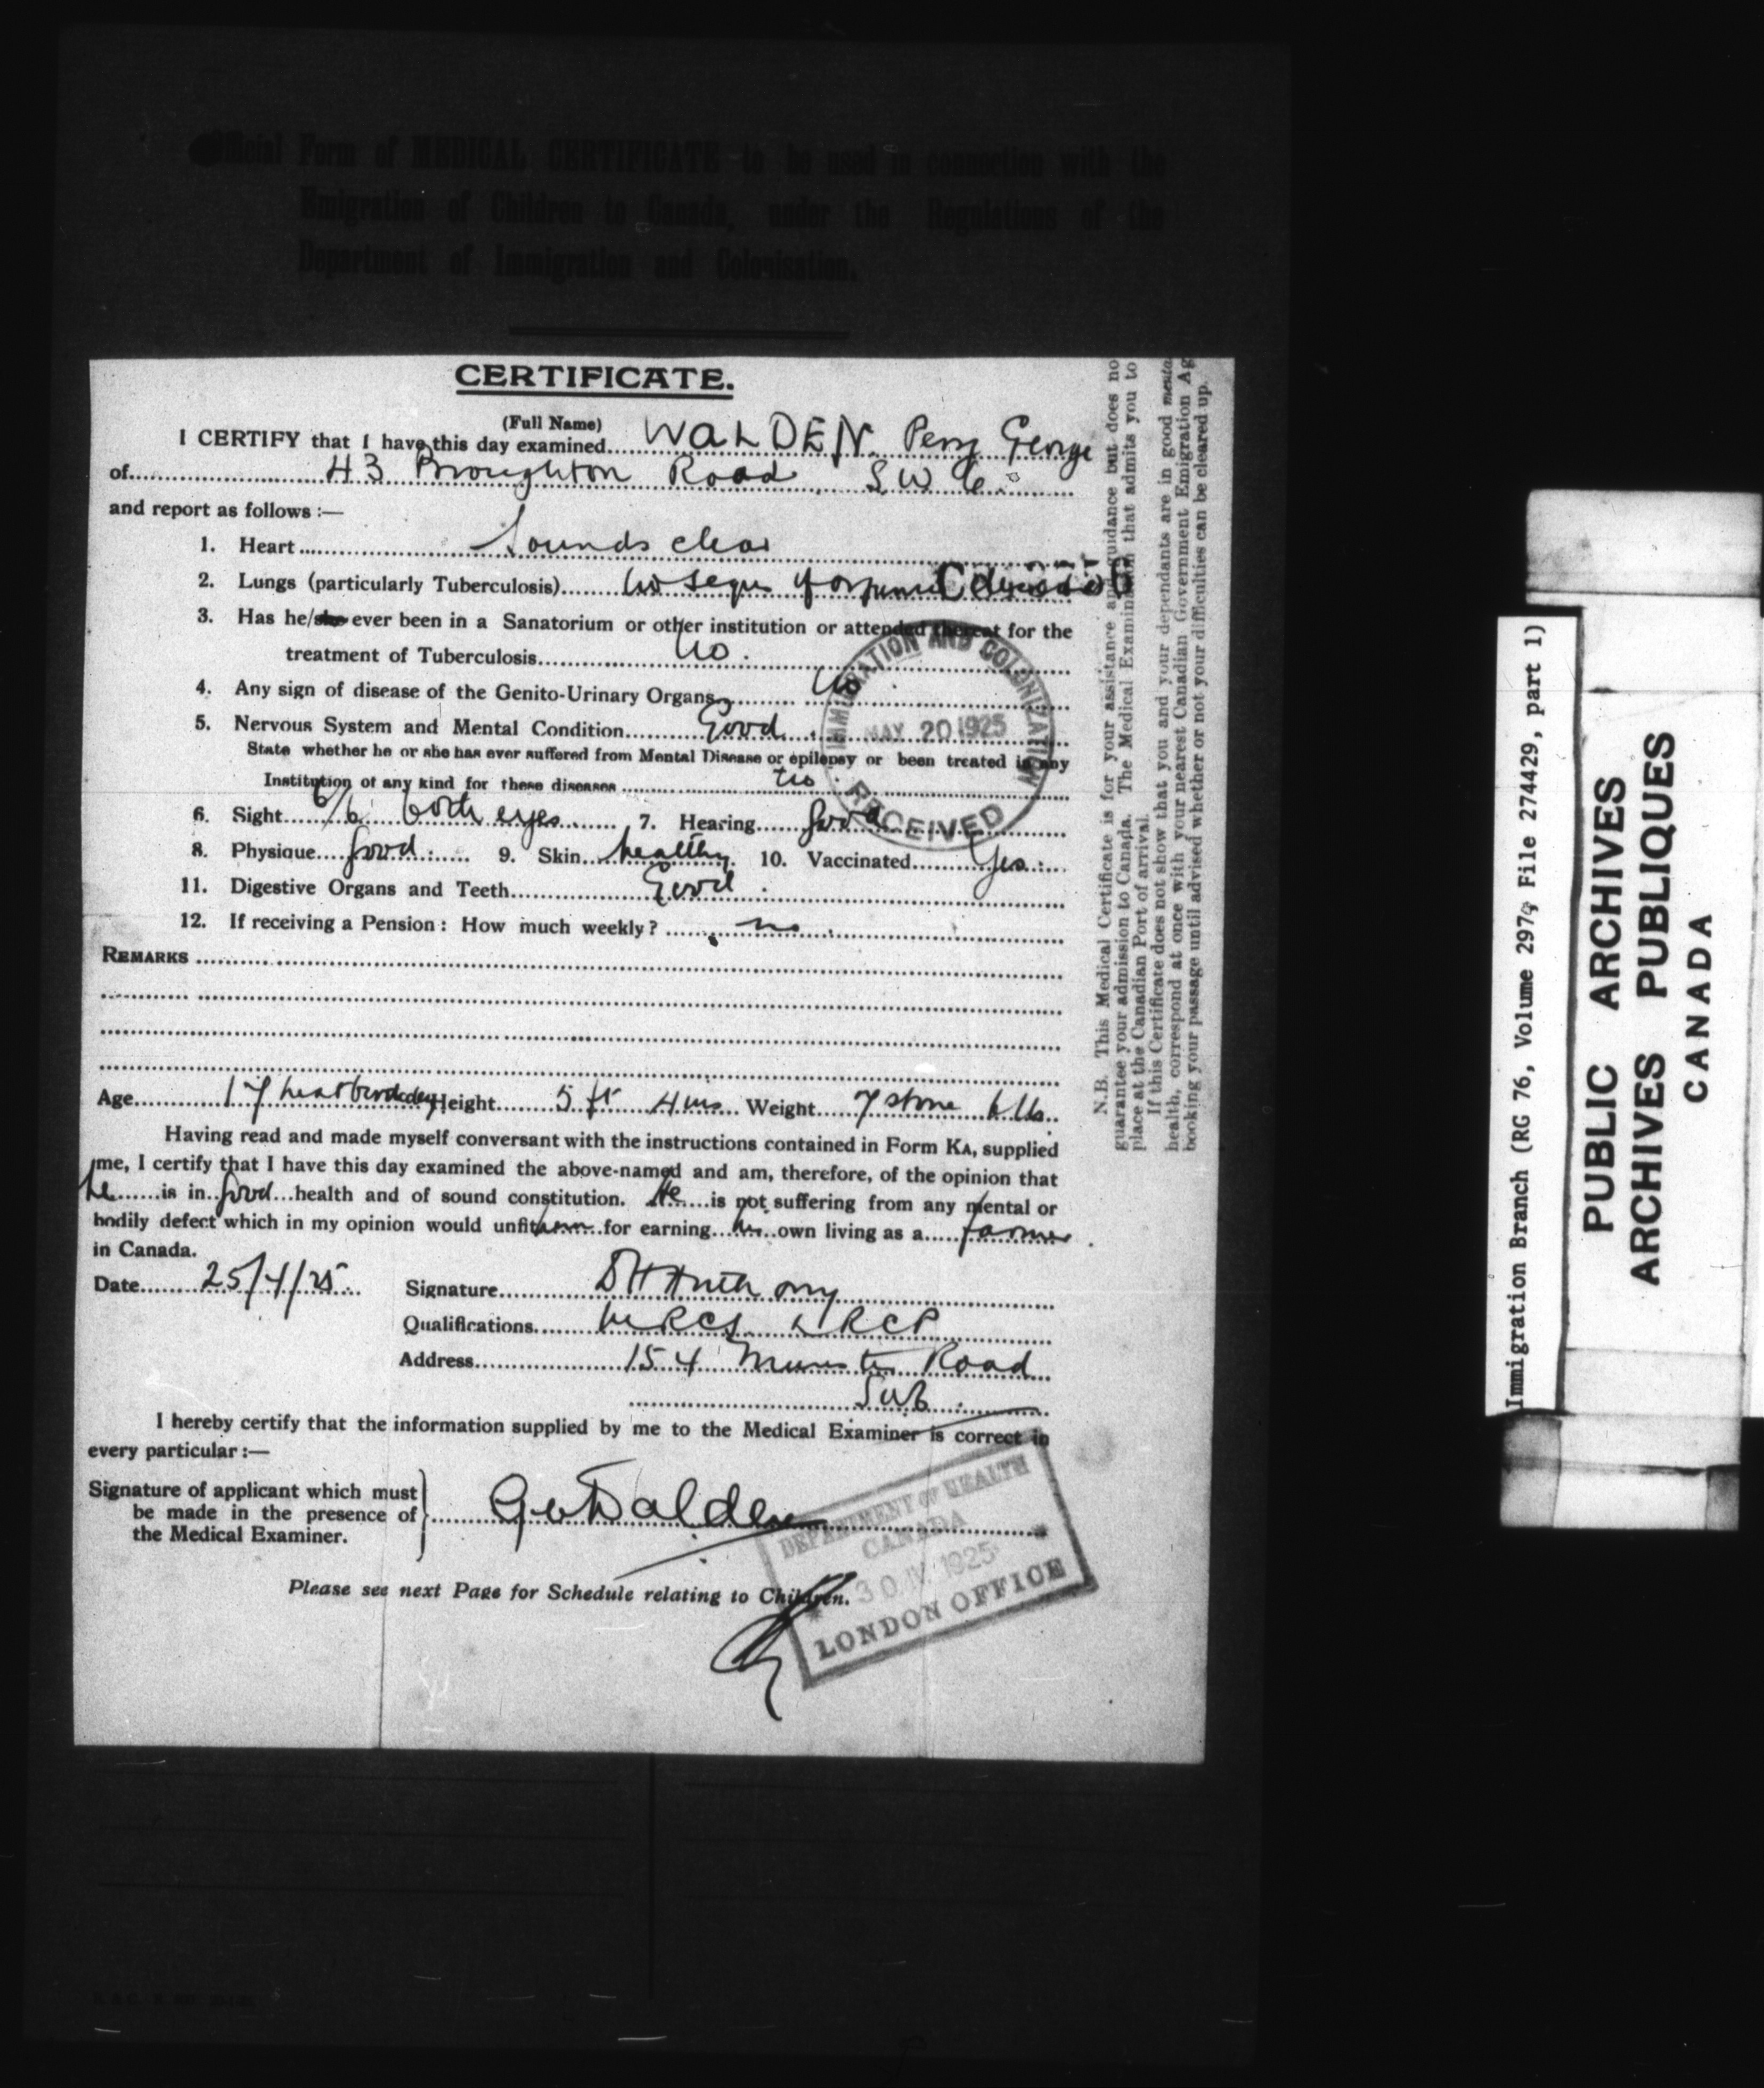 Official Form of MEDICAL CERTIFICATE to be used in connection with the
Emigration of Children to Canada, under the Regulations of the
Department of Immigration and Colonisation.
CERTIFICATE.
(Full Name)
I CERTIFY that I have this day examined WALDEN. Percy George
of 43 Broughton Road S W 6
and report as follows :—
1. Heart Sounds clear
2. Lungs (particularly Tuberculosis) No signs of organic disease
3. Has he/she ever been in a Sanatorium or other institution or attended thereat for the
treatment of Tuberculosis No.
4. Any sign of disease of the Genito-Urinary Organs No
5. Nervous System and Mental Condition Good
State whether he or she has ever suffered from Mental Disease or epilepsy or been treated in any
Institution of any kind for these diseases No
6. Sight 6/6 both eyes 7. Hearing Good
8. Physique Good 9. Skin healthy 10. Vaccinated Yes
11. Digestive Organs and Teeth Good
12. If receiving a Pension : How much weekly ? no
REMARKS
Age 17 next birthday Height 5 ft 4 ins Weight 7 stone 6 lbs.
Having read and made myself conversant with the instructions contained in Form KA, supplied
me, I certify that I have this day examined the above-named and am, therefore, of the opinion that
he is in good health and of sound constitution. He is not suffering from any mental or
bodily defect which in my opinion would unfit him for earning his own living as a farmer
in Canada.
Date 25/4/25 Signature D H Anthony
Qualifications MRCS LRCP
Address 154 Munster Road
SW6
I hereby certify that the information supplied by me to the Medical Examiner is correct in
every particular :—
Signature of applicant which must
be made in the presence of
the Medical Examiner.
G Walden
Please see next Page for Schedule relating to Children.
IMMIGRATION AND COLONIZATION
MAY 20 1925
RECEIVED
DEPARTMENT OF HEALTH
CANADA
30 IV 1925
LONDON OFFICE
N.B. This Medical Certificate is for your assistance and guidance but does no
guarantee your admission to Canada. The Medical Examination that admits you to
place at the Canadian Port of arrival.
If this Certificate does not show that you and your dependants are in good menta
health, correspond at once with your nearest Canadian Government Emigration Ag
booking your passage until advised whether or not your difficulties can be cleared up.
Immigration Branch (RG 76, Volume 297, File 274429, part 1)
PUBLIC ARCHIVES
ARCHIVES PUBLIQUES
CANADA